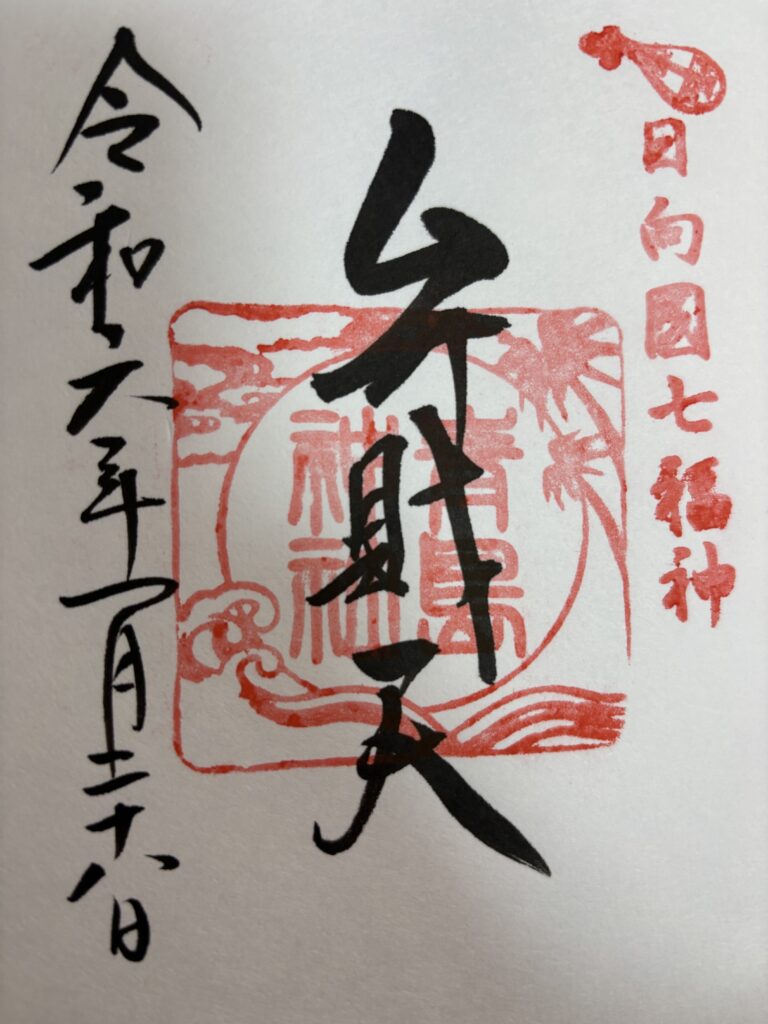 日向國七福神
弁財天
青島
神社
令和六年一月二十八日